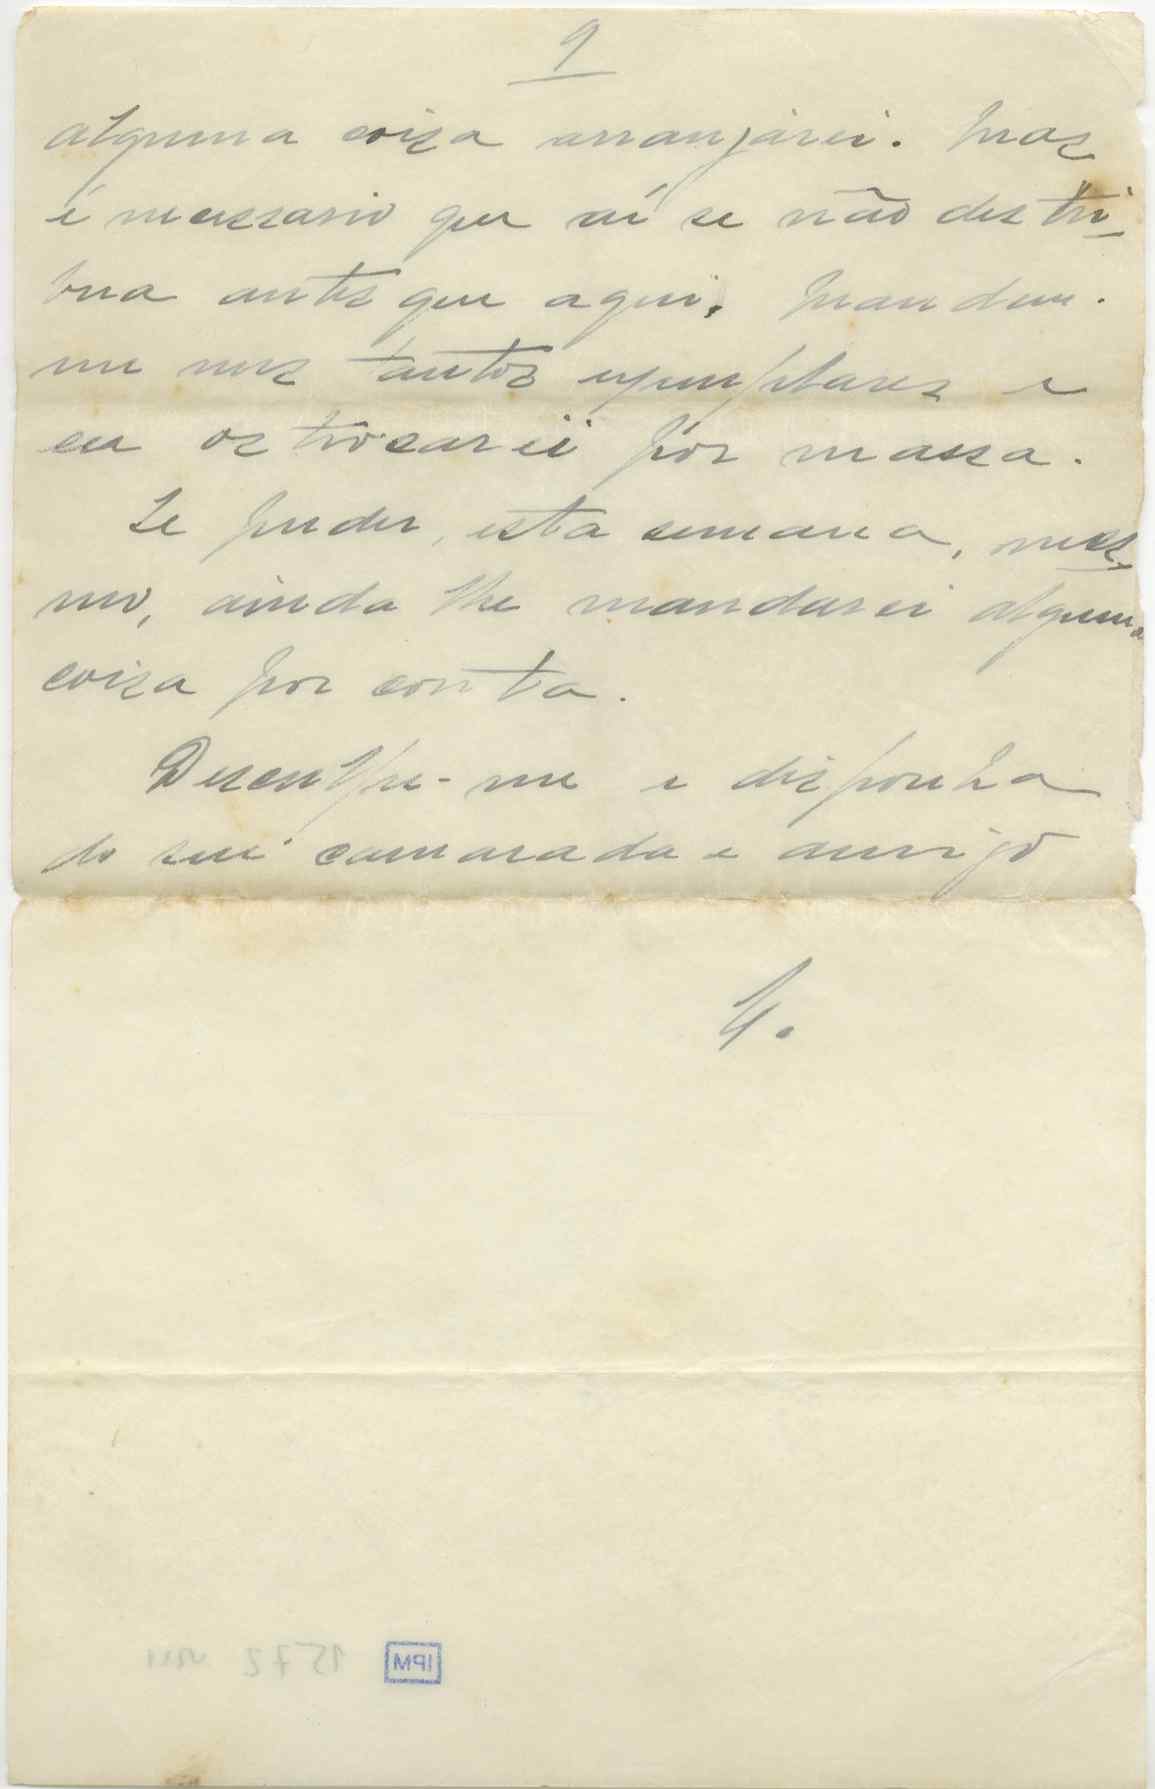 9
alguma coisa arranjarei. Mas
é necessario que aí se não distri-
bua antes que aqui. Mandem-
me uns tantos exemplares e
eu os trocarei por massa.
Se puder, esta semana, mes-
mo, ainda lhe mandarei alguma
coisa por conta.
Desculpe-me e disponha
do seu camarada e amigo
1572 VIII IPM